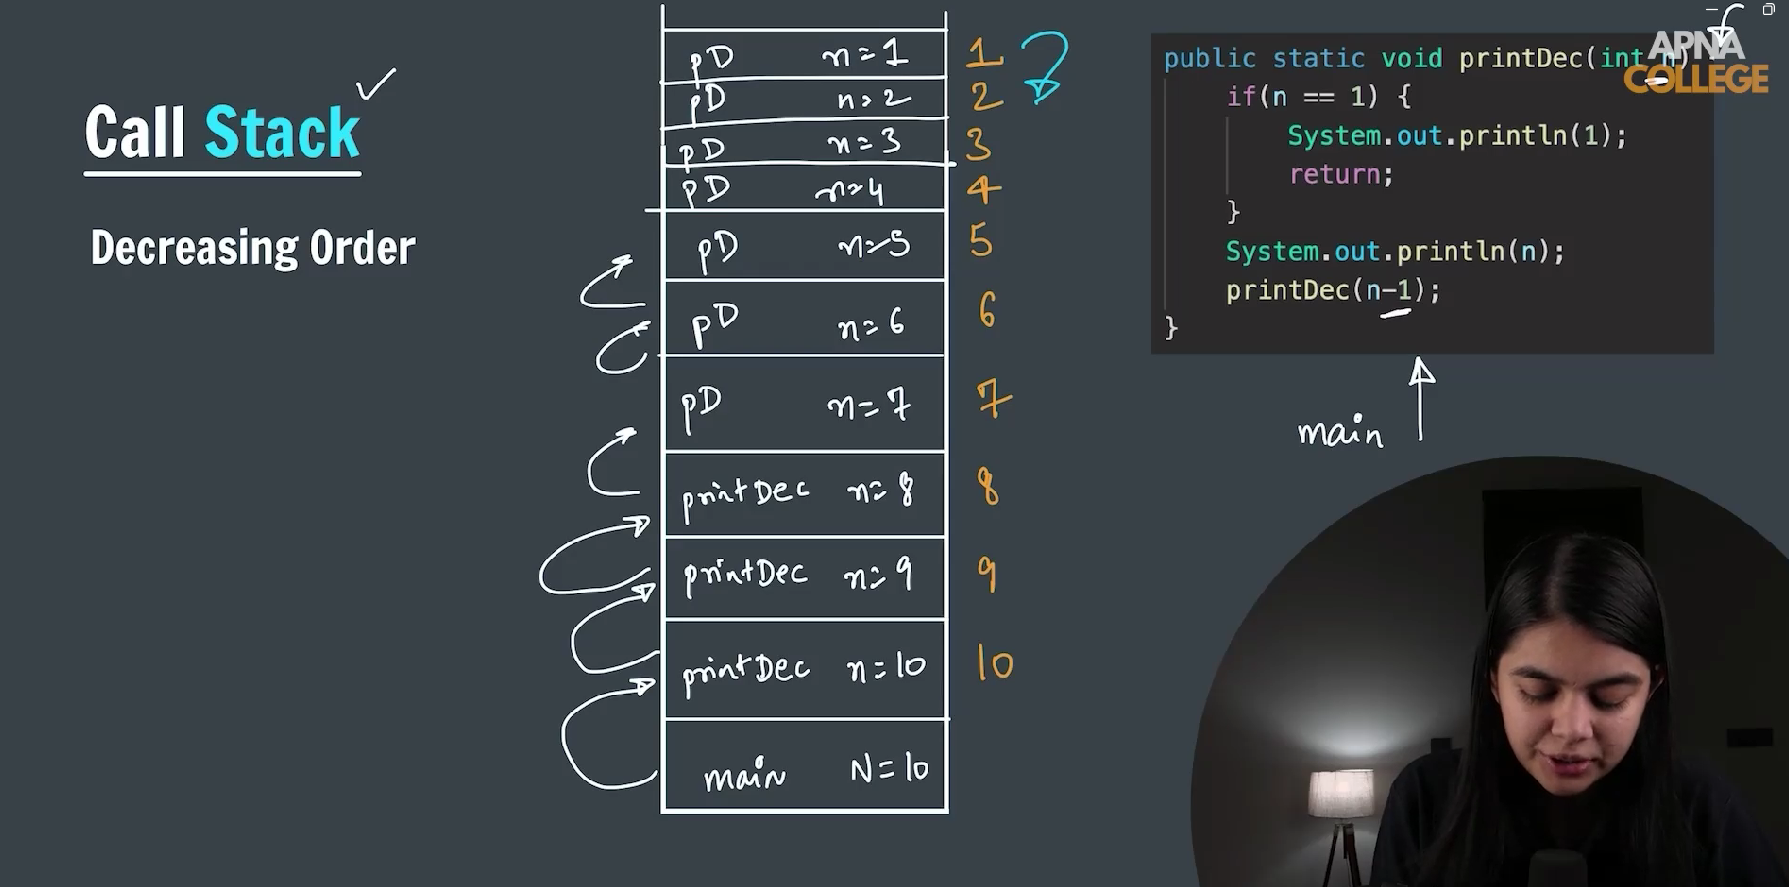 Call Stack
Decreasing Order
pD n=1 1
pD n=2 2
pD n=3 3
pD n=4 4
pD n=5 5
pD n=6 6
pD n=7 7
printDec n=8 8
printDec n=9 9
printDec n=10 10
main N=10
APNA
COLLEGE
public static void printDec(int n)
if(n == 1) {
System.out.println(1);
return;
}
System.out.println(n);
printDec(n-1);
}
main